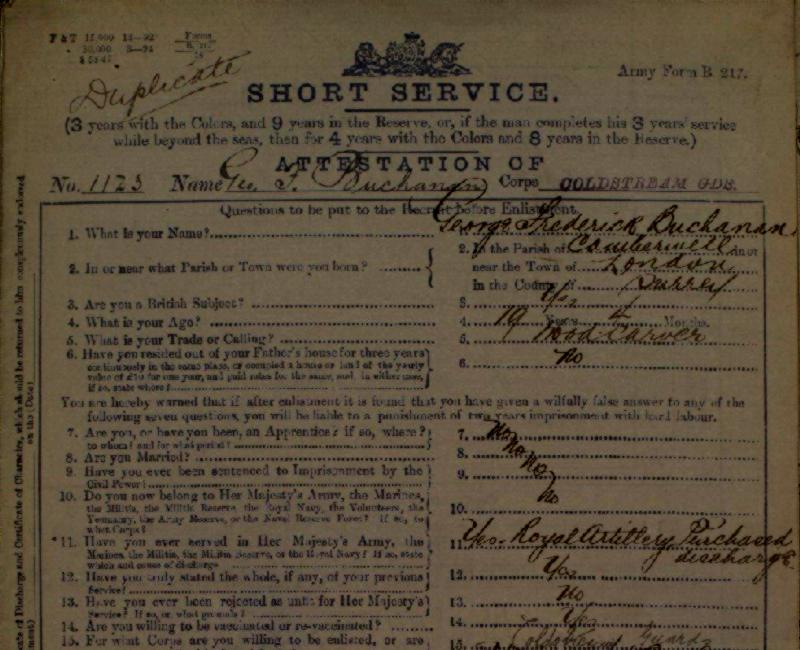 Duplicate
Army Form B. 217.
SHORT SERVICE.
(3 years with the Colors, and 9 years in the Reserve, or, if the man completes his 3 years' service
while beyond the seas, then for 4 years with the Colors and 8 years in the Reserve.)
ATTESTATION OF
No. 1123 Name Geo. F. Buchanan Corps COLDSTREAM GDS.
Questions to be put to the Recruit before Enlistment.
1. What is your Name? George Frederick Buchanan
2. In or near what Parish or Town were you born? 2. In the Parish of Camberwell in or
near the Town of London
in the County of Surrey
3. Are you a British Subject? 3. Yes
4. What is your Age? 4. 19 Years Months.
5. What is your Trade or Calling? 5. Wood Carver
6. Have you resided out of your Father's house for three years 6. No
continuously in the same place, or occupied a house or land of the yearly
value of £10 for one year, and paid rates for the same, and, in either case,
if so, state where?
You are hereby warned that if after enlistment it is found that you have given a wilfully false answer to any of the
following seven questions, you will be liable to a punishment of two years imprisonment with hard labour.
7. Are you, or have you been, an Apprentice? if so, where? 7. No
to whom? and for what period?
8. Are you Married? 8. No
9. Have you ever been sentenced to Imprisonment by the 9. No
Civil Power?
10. Do you now belong to Her Majesty's Army, the Marines, 10. No
the Militia, the Militia Reserve, the Royal Navy, the Volunteers, the
Yeomanry, the Army Reserve, or the Naval Reserve Force? If so, to
what Corps?
*11. Have you ever served in Her Majesty's Army, the 11. Yes. Royal Artillery Purchased
Marines, the Militia, the Militia Reserve, or the Royal Navy? If so, state discharge
which and cause of discharge
12. Have you truly stated the whole, if any, of your previous 12. Yes
Service?
13. Have you ever been rejected as unfit for Her Majesty's 13. No
Service? If so, on what grounds?
14. Are you willing to be vaccinated or re-vaccinated? 14. Yes
15. For what Corps are you willing to be enlisted, or are 15. Coldstream Guards